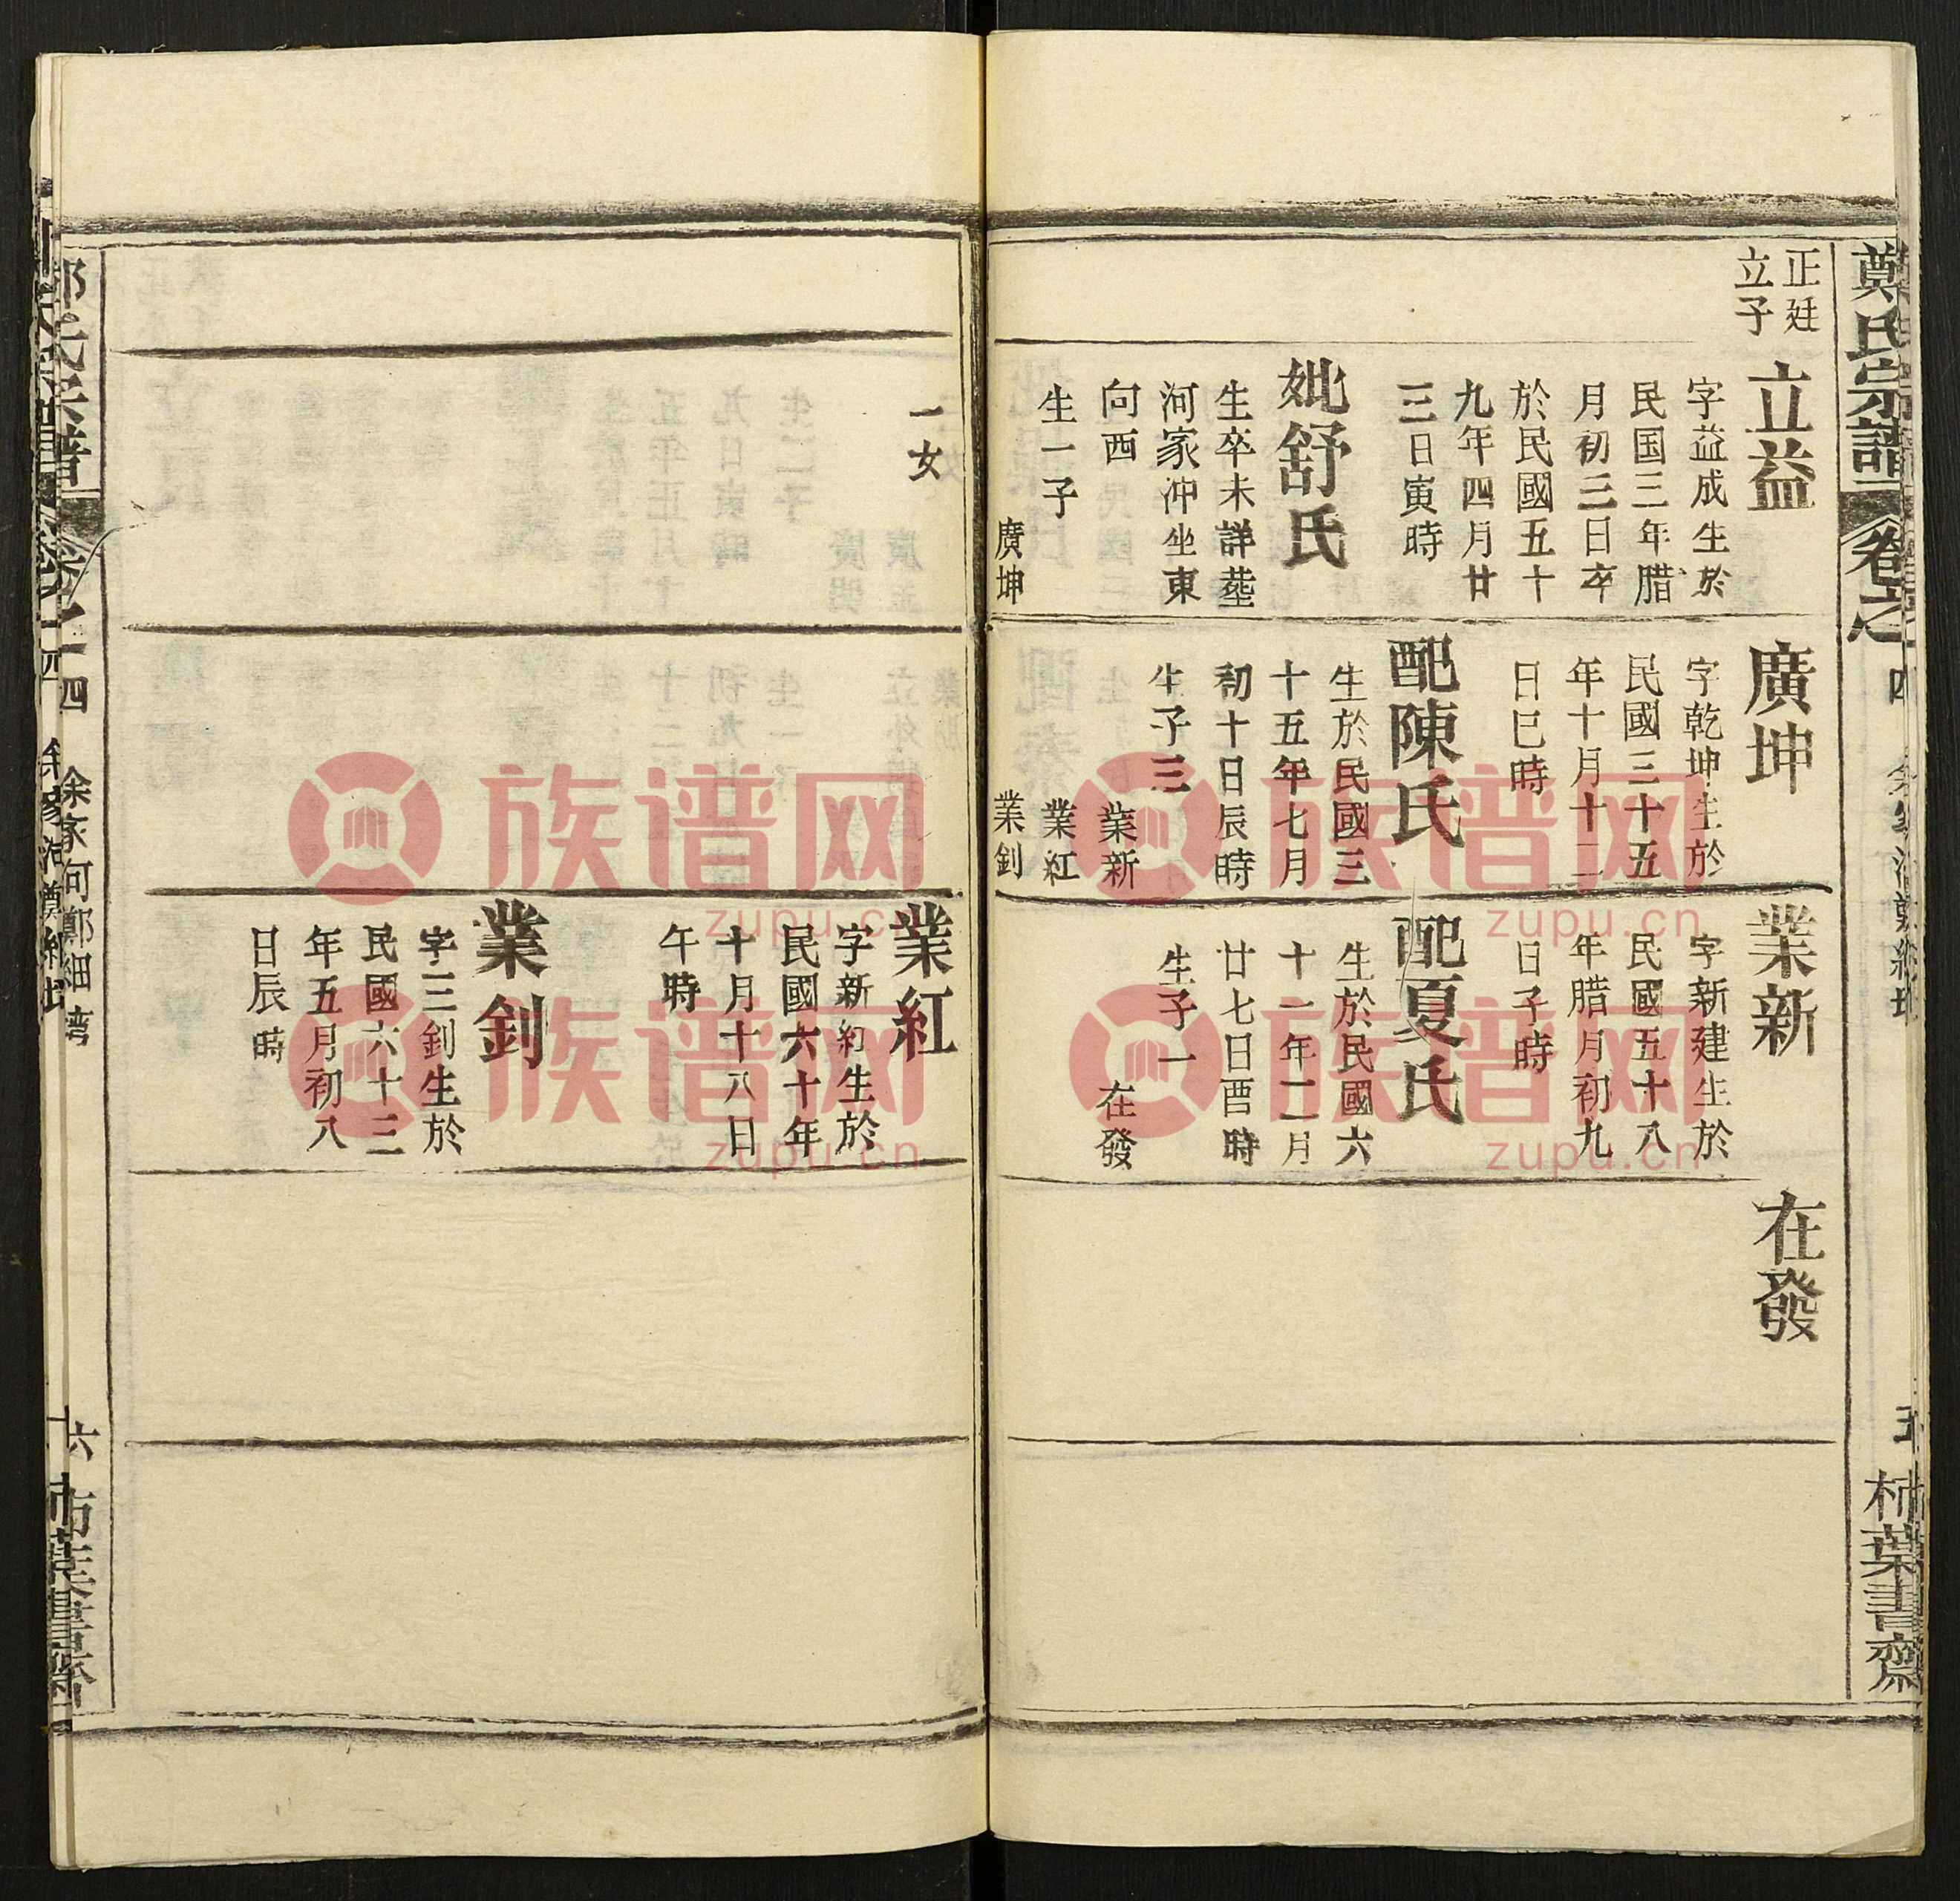 鄭氏宗譜
卷之
四
五
柿葉書齋
正廷
立子
立益
字益成生於
民国三年腊
月初三日卒
於民國五十
九年四月廿
三日寅時
妣舒氏
生卒未詳塟
河家冲坐東
向西
生一子
廣坤
廣坤
字乾坤生於
民國三十五
年十月十二
日巳時
配陳氏
生於民國三
十五年七月
初十日辰時
生子三
業新
業紅
業釗
業新
字新建生於
民國五十八
年腊月初九
日子時
配夏氏
生於民國六
十一年二月
廿七日酉時
生子一
在發
在發
一女
業紅
字新紅生於
民國六十年
十月十八日
午時
業釗
字三釗生於
民國六十三
年五月初八
日辰時
四
余家何鄭細湾
族谱网
zupu.cn
族谱网
zupu.cn
族谱网
zupu.cn
族谱网
zupu.cn